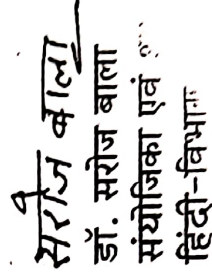 सरोज बाला
डॉ. सरोज बाला
संयोजिका एवं
हिंदी-विभाग